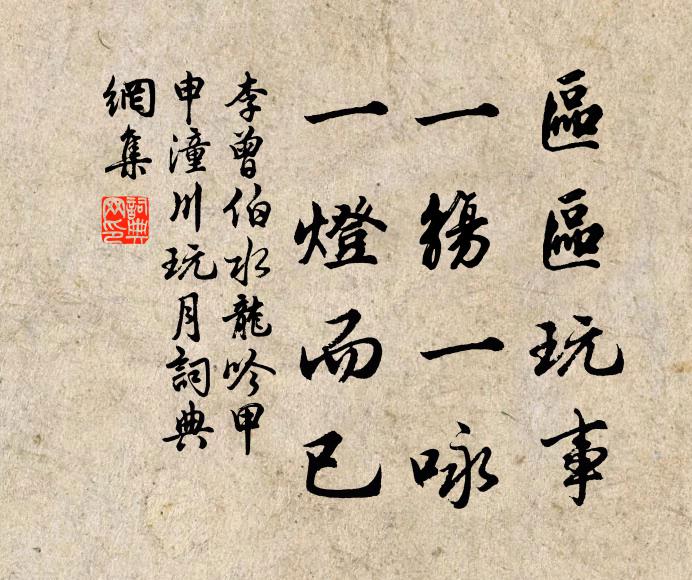 區區玩事
一觴一咏
一燈而已
李曾伯水龍吟甲
申潼川玩月詞典
網集
詞典網印